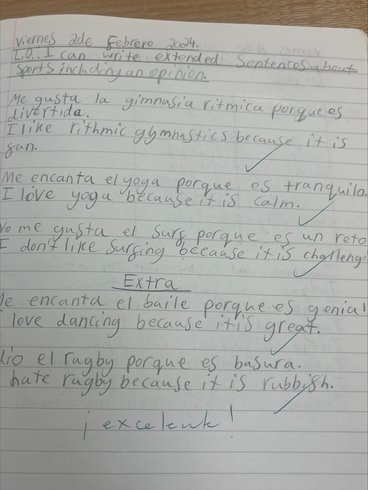 viernes 2 de Febrero 2024.
L.O. I can write extended sentences about
sports including an opinion.
Me gusta la gimnasia ritmica porque es
divertida.
I like rithmic gymnastics because it is
fun.
Me encanta el yoga porque es tranquilo.
I love yoga because it is calm.
No me gusta el surf porque es un reto
I don't like surfing because it is challengi
Extra
Me encanta el baile porque es genial
I love dancing because it is great.
dio el rugby porque es basura.
hate rugby because it is rubbish.
¡excelente!